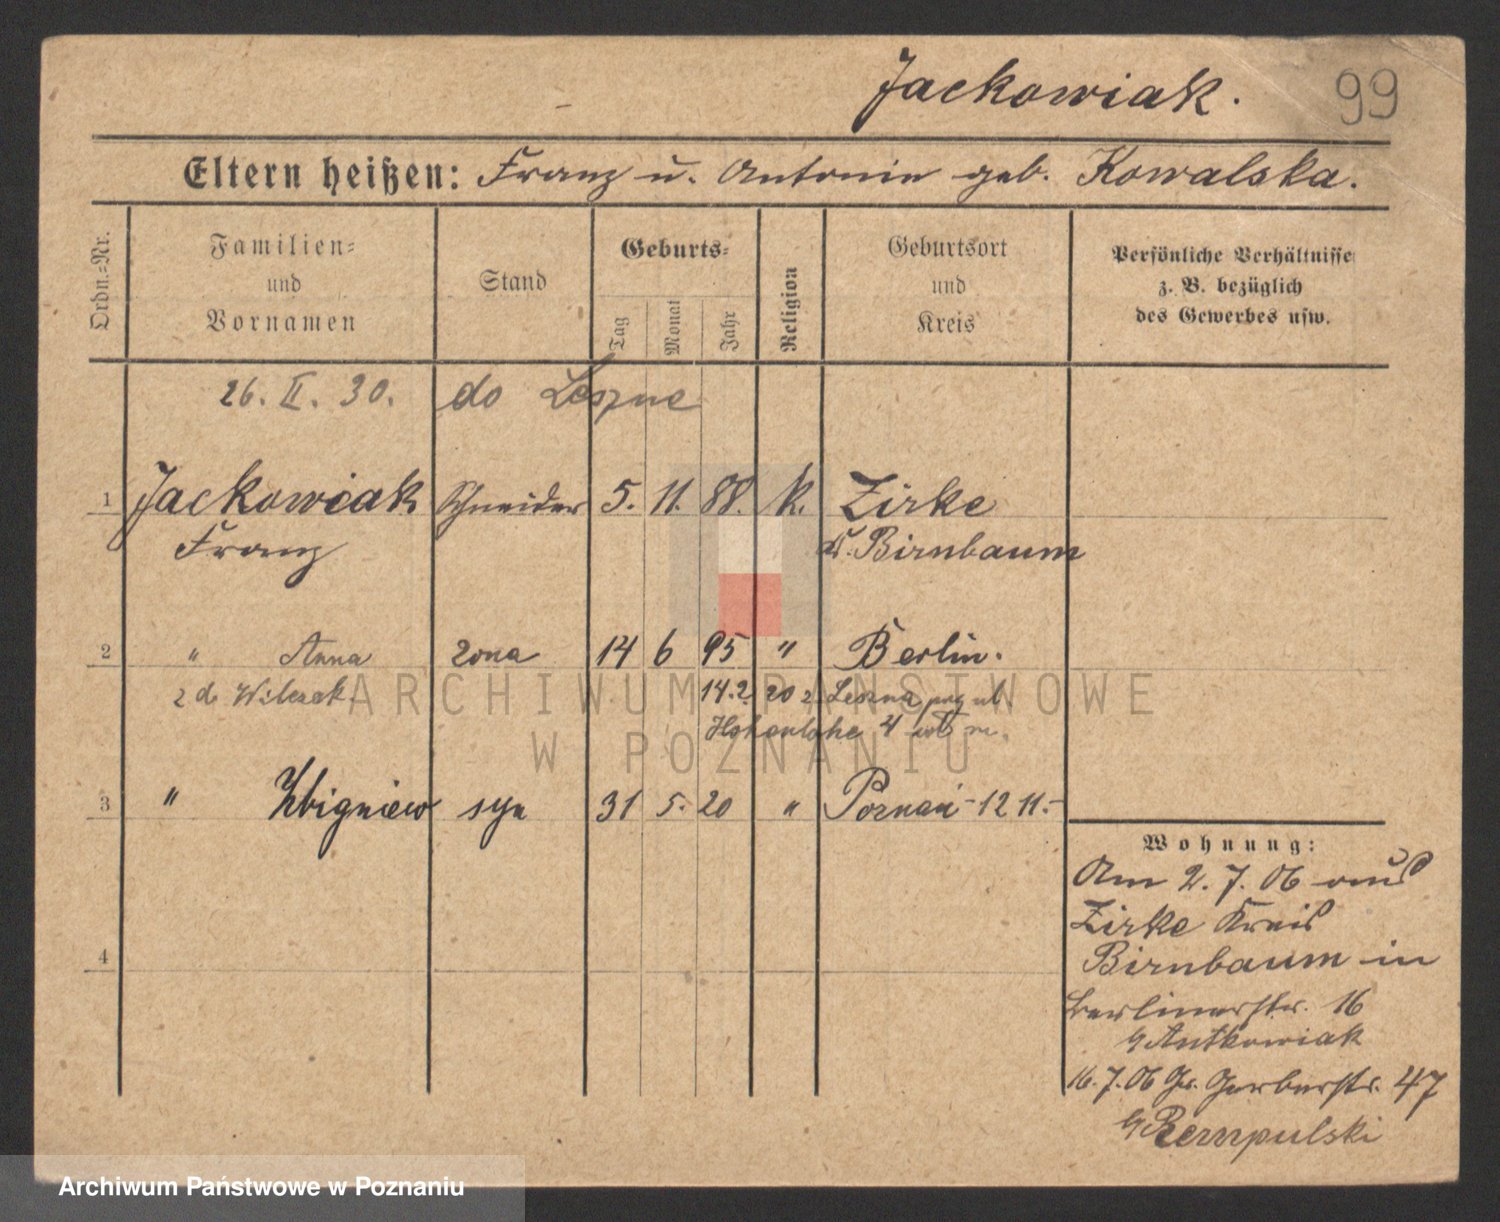 Jackowiak.
99
Eltern heißen: Franz u. Antonie geb. Kowalska.
Ordn.=Nr.
Familien=
und
Vornamen
Stand
Geburts=
Tag
Monat
Jahr
Religion
Geburtsort
und
Kreis
Persönliche Verhältnisse
z. B. bezüglich
des Gewerbes usw.
26. II. 30. do Leszna
1 Jackowiak Schneider 5. 11. 88. k. Zirke
Franz K. Birnbaum
2 " Anna żona 14 6 95 " Berlin.
2 d. Wilczak 14.2. 20 z Leszna
Hohenlohe 4
3 " Zbigniew syn 31 5. 20 " Poznań - 12 11. -
4
Wohnung:
Am 2. 7. 06 aus
Zirke Kreis
Birnbaum in
Berlinerstr. 16
b/ Antkowiak
16. 7. 06 Gr. Gerberstr. 47
b/
ARCHIWUM PAŃSTWOWE
W POZNANIU
Archiwum Państwowe w Poznaniu